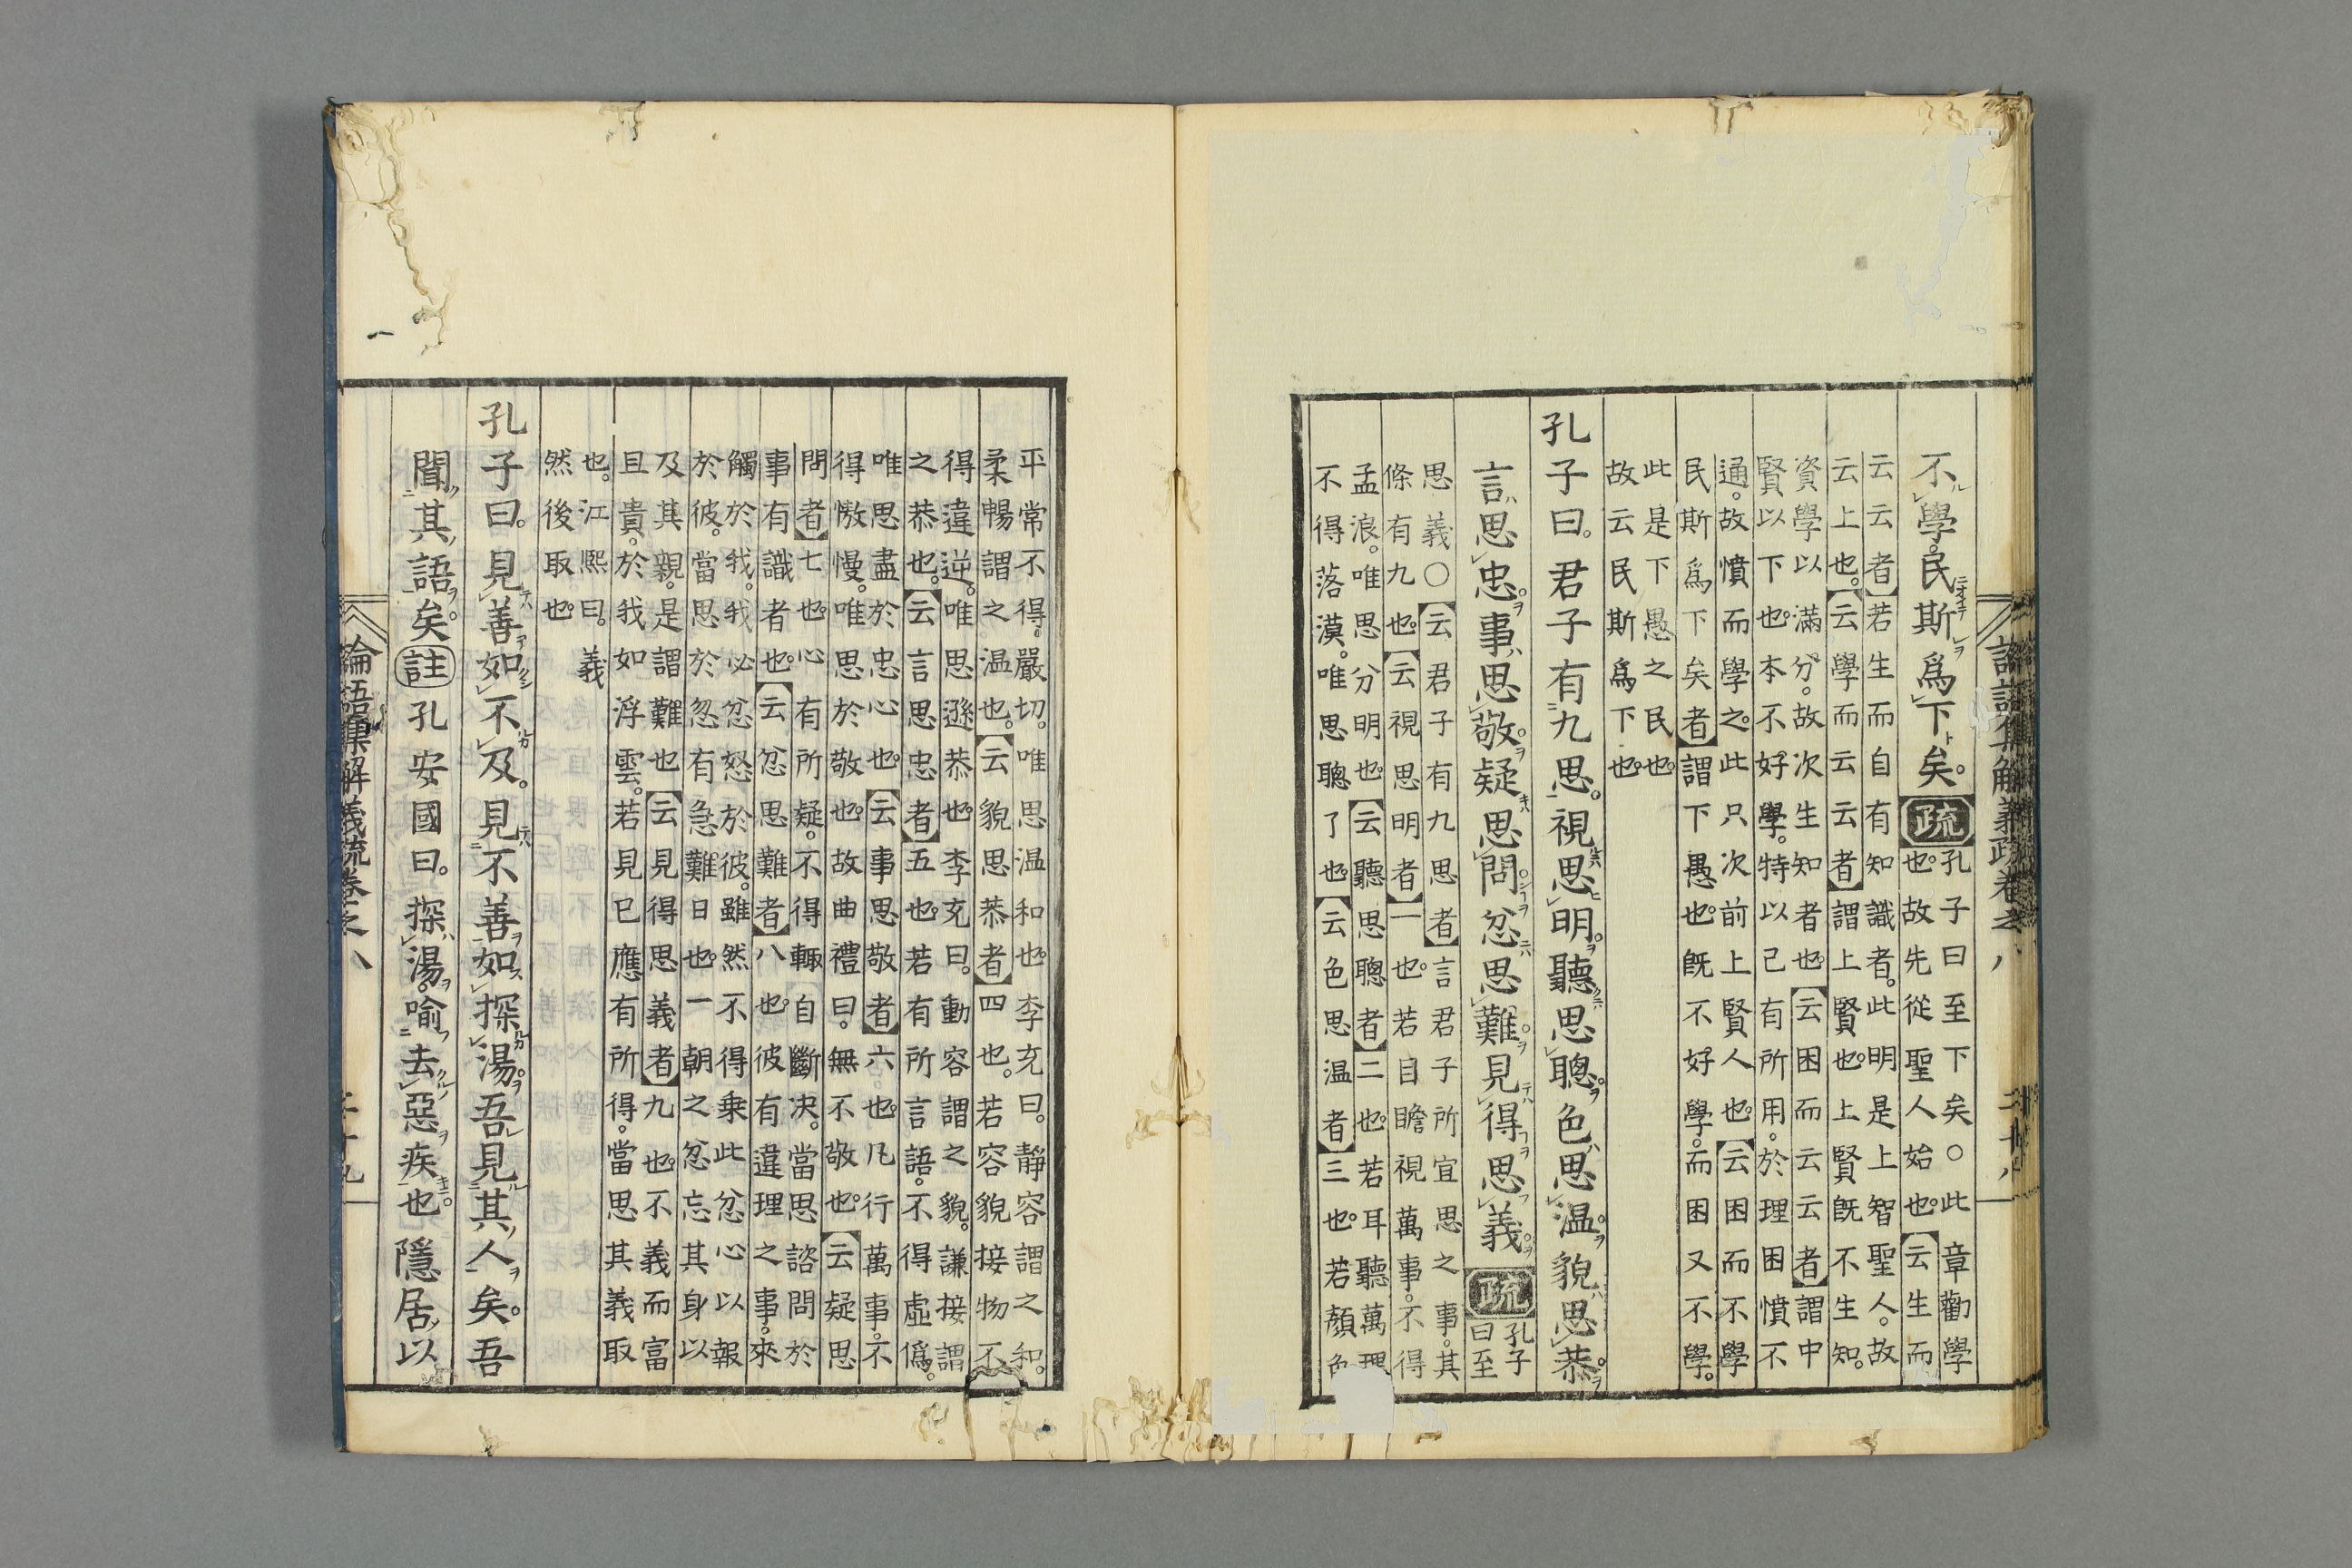 不學。民斯爲下矣。疏
孔子曰至下矣○此章勸學
也。故先從聖人始也。【云生而
云云者】若生而自有知識者。此明是上智聖人。故
云上也。【云學而云云者】謂上賢也。上賢既不生知。
資學以滿分。故次生知者也。【云困而云云者】謂中
賢以下也。本不好學。特以己有所用。於理困憤不
通。故憤而學之。此只次前上賢人也。【云困而不學
民斯爲下矣者】謂下愚也。既不好學。而困又不學。
此是下愚之民也。
故云民斯爲下也。
孔子曰。君子有九思。視思明。聽思聰。色思温。貌思恭。
言思忠。事思敬。疑思問。忿思難。見得思義。疏
孔子
曰至
思義○【云君子有九思者】言君子所宜思之事。其
條有九也。【云視思明者】一也。若目瞻視萬事。不得
孟浪。唯思分明也。【云聽思聰者】二也。若耳聽萬理
不得落漠。唯思聰了也。【云色思温者】三也。若顏色
平常不得嚴切。唯思温和也。李充曰。靜容謂之和。
柔暢謂之温也。【云貌思恭者】四也。若容貌接物不
得違逆。唯思遜恭也。李充曰。動容謂之貌。謙接謂
之恭也。【云言思忠者】五也。若有所言語。不得虛僞。
唯思盡於忠心也。【云事思敬者】六也。凡行萬事。不
得慠慢。唯思於敬也。故曲禮曰。無不敬也。【云疑思
問者】七也。心有所疑。不得輙自斷决。當思諮問於
事有識者也。【云忿思難者】八也。彼有違理之事。來
觸於我。我必忿怒於彼。雖然不得乗此忿心以報
於彼。當思於忽有急難日也。一朝之忿忘其身以
及其親。是謂難也。【云見得思義者】九也。不義而富
且貴。於我如浮雲。若見已應有所得。當思其義取
也。江熙曰。義
然後取也。
孔子曰。見善如不及。見不善如探湯。吾見其人矣。吾
聞其語矣。註孔安國曰。探湯。喻去惡疾也。隱居以
論語集解義疏卷之八